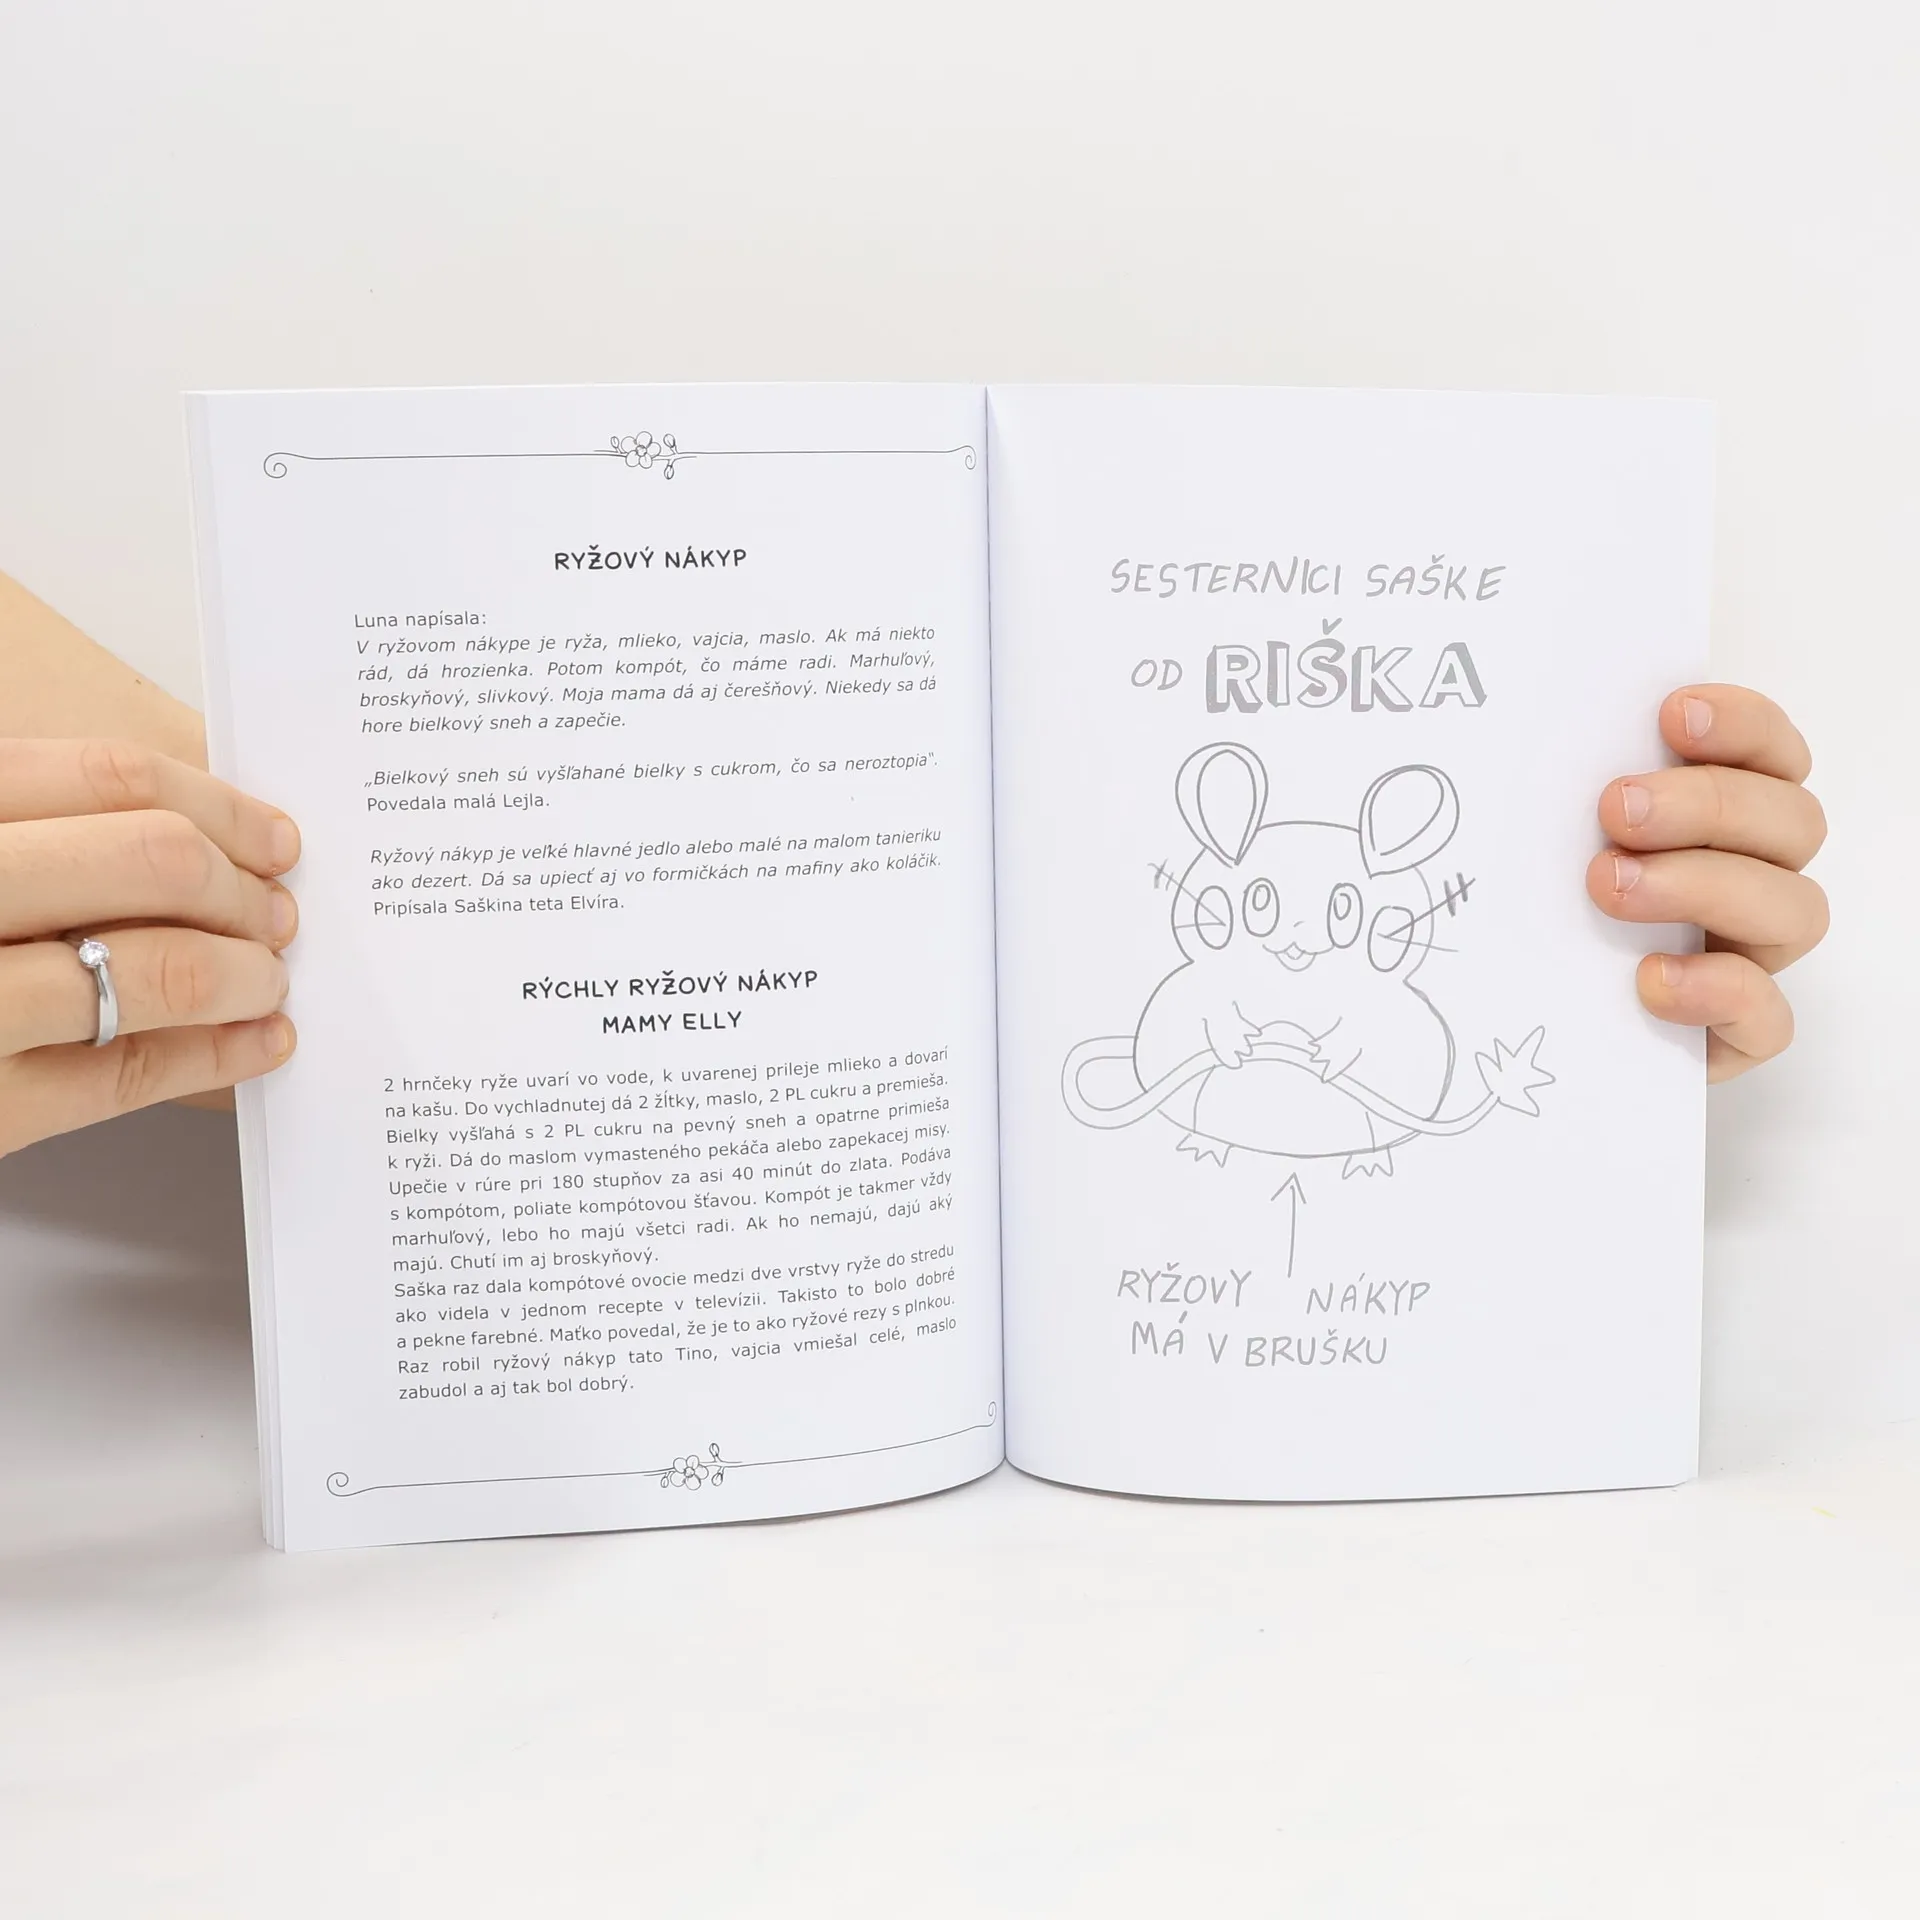 RYŽOVÝ NÁKYP
Luna napísala:
V ryžovom nákype je ryža, mlieko, vajcia, maslo. Ak má niekto
rád, dá hrozienka. Potom kompót, čo máme radi. Marhuľový,
broskyňový, slivkový. Moja mama dá aj čerešňový. Niekedy sa dá
hore bielkový sneh a zapečie.
„Bielkový sneh sú vyšľahané bielky s cukrom, čo sa neroztopia".
Povedala malá Lejla.
Ryžový nákyp je veľké hlavné jedlo alebo malé na malom tanieriku
ako dezert. Dá sa upiecť aj vo formičkách na mafiny ako koláčik.
Pripísala Saškina teta Elvíra.
RÝCHLY RYŽOVÝ NÁKYP
MAMY ELLY
2 hrnčeky ryže uvarí vo vode, k uvarenej prileje mlieko a dovarí
na kašu. Do vychladnutej dá 2 žĺtky, maslo, 2 PL cukru a premieša.
Bielky vyšľahá s 2 PL cukru na pevný sneh a opatrne primieša
k ryži. Dá do maslom vymasteného pekáča alebo zapekacej misy.
Upečie v rúre pri 180 stupňov za asi 40 minút do zlata. Podáva
s kompótom, poliate kompótovou šťavou. Kompót je takmer vždy
marhuľový, lebo ho majú všetci radi. Ak ho nemajú, dajú aký
majú. Chutí im aj broskyňový.
Saška raz dala kompótové ovocie medzi dve vrstvy ryže do stredu
ako videla v jednom recepte v televízii. Takisto to bolo dobré
a pekne farebné. Maťko povedal, že je to ako ryžové rezy s plnkou.
Raz robil ryžový nákyp tato Tino, vajcia vmiešal celé, maslo
zabudol a aj tak bol dobrý.
SESTERNICI SAŠKE
OD RIŠKA
RYŽOVY NÁKYP
MÁ V BRUŠKU